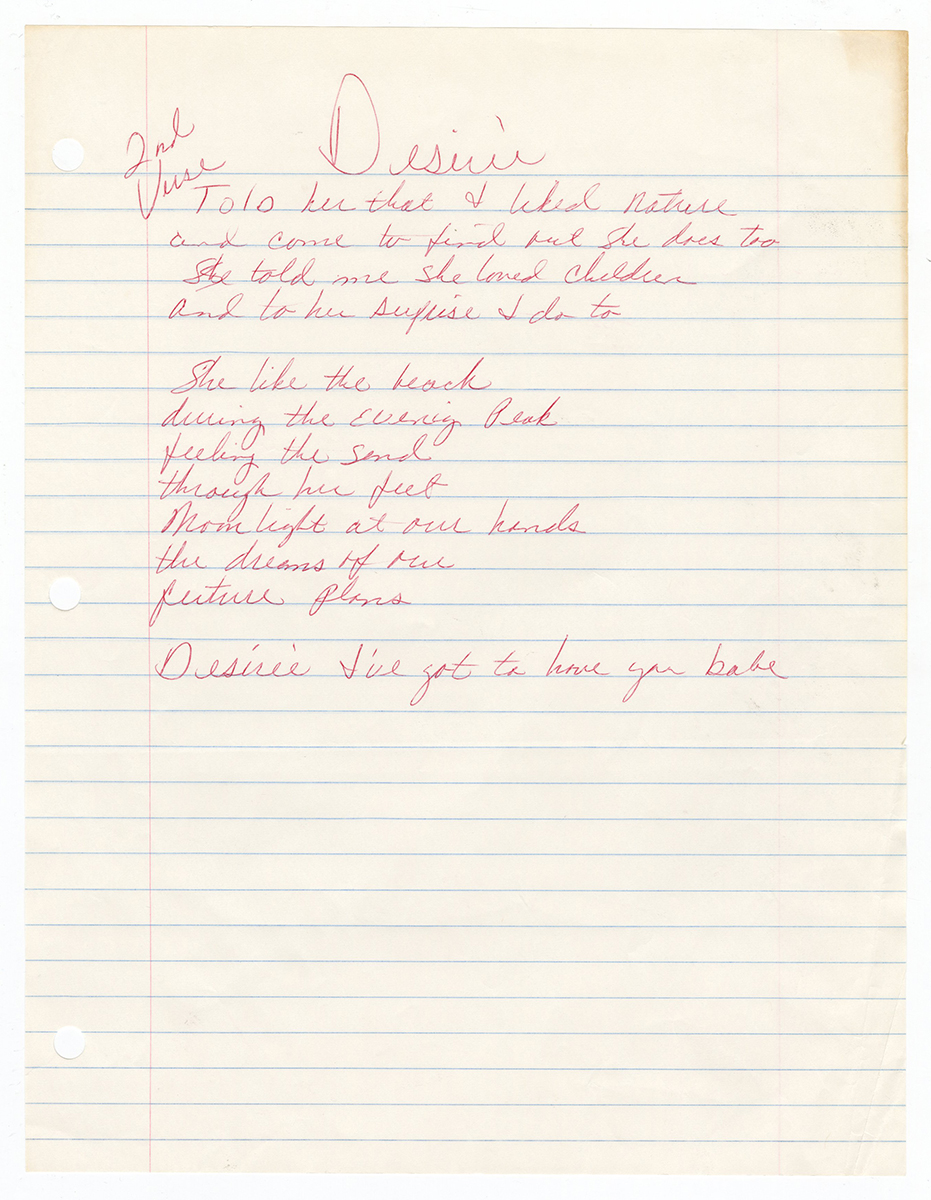 Desirèe
2nd
Verse
Told her that I liked Nature
and come to find out she does too
She told me she loved children
and to her suprise I do to
She like the beach
during the Evenig Peak
feeling the sand
through her feet
Moon light at our hands
the dreams of our
furture plans
Desirèe I've got to have you babe